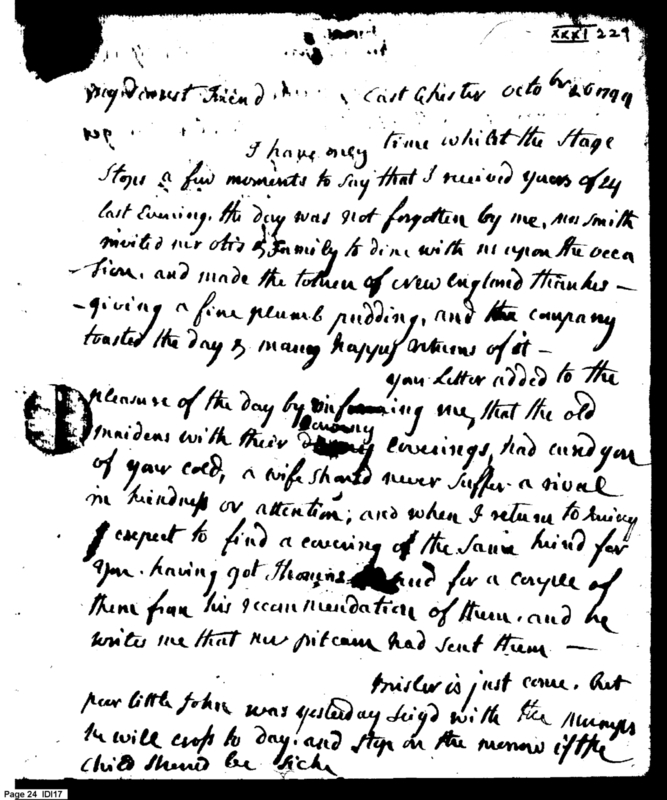 XXXI 229
my dearest Friend East Chester octobr 26 1799
I have only time whilst the Stage
stops a few moments to say that I received yours of 24
last Evening. the day was not forgotten by me, mrs Smith
invited mr otis & Family to dine with us upon the occa
sion. and made the token of new england thanks—
-giving a fine plumb pudding, and the company
toasted the day & many happy returns of it—
your Letter added to the
pleasure of the day by informing me, that the old
maidens with their downy coverings, had cured you
of your cold, a wife should never suffer a rival
in kindness or attention; and when I return to Quincy
I expect to find a covering of the same kind for
you. having got Thomas for a couple of
them from his recommendation of them. and he
writes me that mr pitcairn had sent them —
Brisler is just come. but
poor little John was yesterday seizd with the mumps
he will cross to day. and stop on the morrow if the
child should be sick
Page 24 IDI17